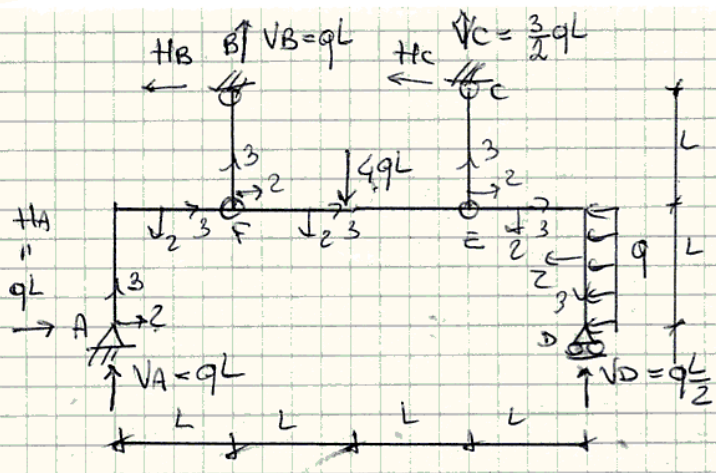 HB B VB=qL HC VC = 3/2 qL
C
3 2 4qL 3 2 L
HA
"
qL
2 3 F 2 3 E 2 3
q L
3 2 2 3
A D
VA=qL VD=qL/2
L L L L